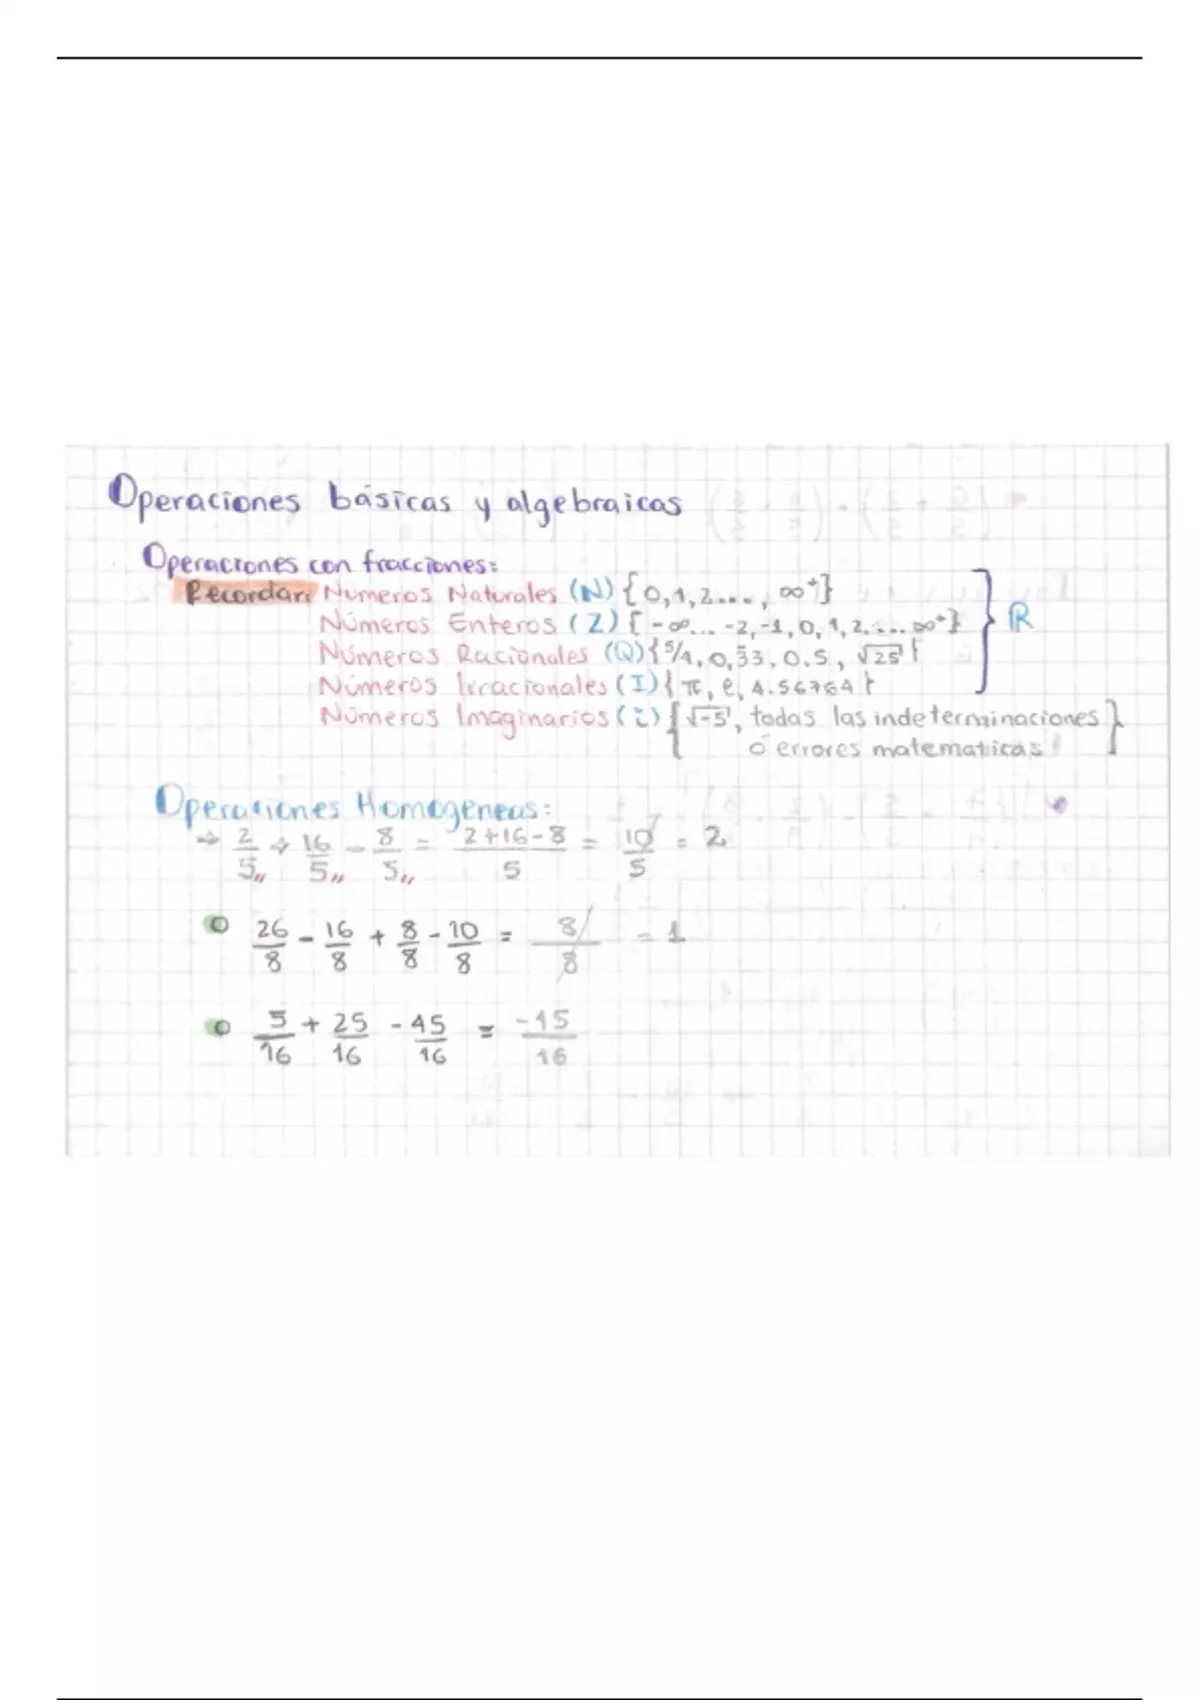 Operaciones básicas y algebraicas
Operaciones con fracciones:
Recordar: Números Naturales (N) {0,1,2..., ∞⁺}
Números Enteros (Z) {-∞... -2,-1,0,1,2..... ∞⁺} ℝ
Números Racionales (Q) {5/4, 0,33, 0.5, √25}
Números Irracionales (I) {π, e, 4.56764}
Números Imaginarios (i) {√-5, todas las indeterminaciones
ó errores matematicas}
Operaciones Homogeneas:
→ 2/5 + 16/5 - 8/5 = (2+16-8)/5 = 10/5 = 2
26/8 - 16/8 + 8/8 - 10/8 = 8/8 = 1
5/16 + 25/16 - 45/16 = -15/16